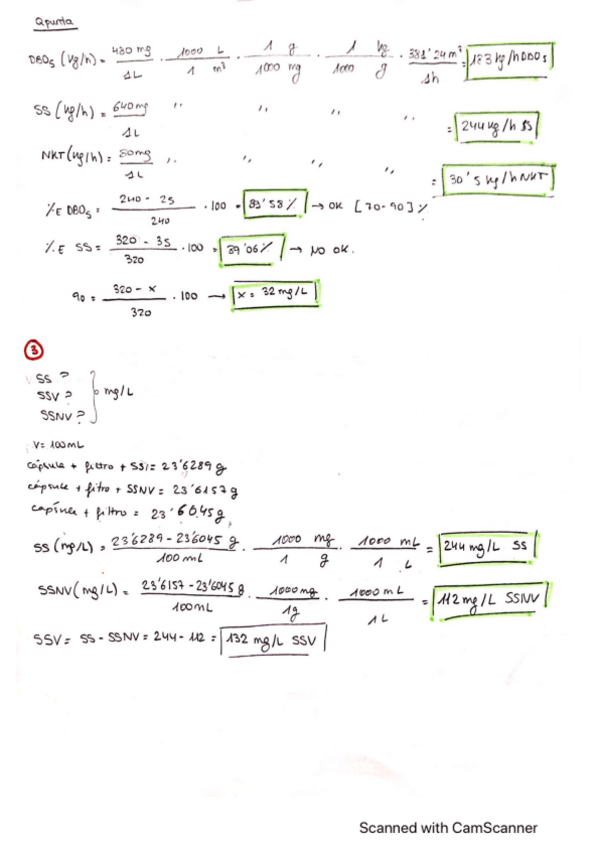 Qpunta
DBO₅ (kg/h) = 480 mg / 1L · 1000 L / 1 m³ · 1 g / 1000 mg · 1 kg / 1000 g · 381'24 m³ / 1h = 183 kg/h DBO₅
SS (kg/h) = 640 mg / 1L '' '' '' '' = 244 kg/h SS
NKT (kg/h) = 80mg / 1L '' '' '' '' = 30'5 kg/h NKT
% E DBO₅ = 240 - 25 / 240 · 100 = 89'58 % → OK [70-90] %
% E SS = 320 - 35 / 320 · 100 = 89'06 % → NO OK.
90 = 320 - x / 320 · 100 → x = 32 mg/L
3
SS ?
SSV ? } mg/L
SSNV ?
V = 100mL
cápsula + filtro + SS = 23'6289 g
cápsula + filtro + SSNV = 23'6157 g
cápsula + filtro = 23'6045 g
SS (mg/L) = 23'6289 - 23'6045 g / 100 mL · 1000 mg / 1 g · 1000 mL / 1 L = 244 mg/L SS
SSNV (mg/L) = 23'6157 - 23'6045 g / 100mL · 1000mg / 1g · 1000 mL / 1L = 112 mg/L SSNV
SSV = SS - SSNV = 244 - 112 = 132 mg/L SSV
Scanned with CamScanner